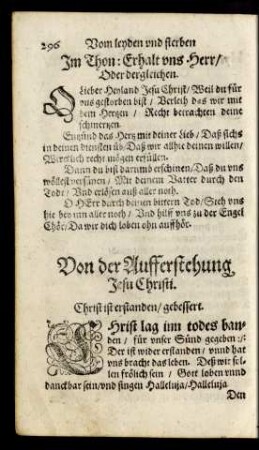 296 Vom leyden vnd sterben
Im Thon: Erhalt vns Herr/
Oder dergleichen.
O Lieber Heyland Jesu Christ/ Weil du für
vns gestorben bist/ Verleih das wir mit
dem Hertzen/ Recht betrachten deine
schmertzen.
Entzünd das Hertz mit deiner Lieb/ Daß sichs
in deinen diensten üb/ Daß wir allhie deinen willen/
recht mögen erfüllen.
Dann du bist darumb erschinen/ Daß du vns
wöllest versünen/ Mit deinem Vatter durch den
Tod/ Vnd erlösen auß aller noth.
O HErr durch deinen bittern Tod/ Steh vns
hie bey inn aller noth/ Vnd hilff vns zu der Engel
Chör/ Da wir dich loben ohn auffhör.
Von der Aufferstehung
Jesu Christi.
Christ ist erstanden/ gebessert.
CHrist lag inn todes ban-
den/ für vnser Sünd gegeben:/:
Der ist wider erstanden/ vnnd hat
vns bracht das leben. Deß wir sol-
len frölich sein/ Gott loben vnnd
danckbar sein/ vnd singen Halleluja/ Halleluja
Den